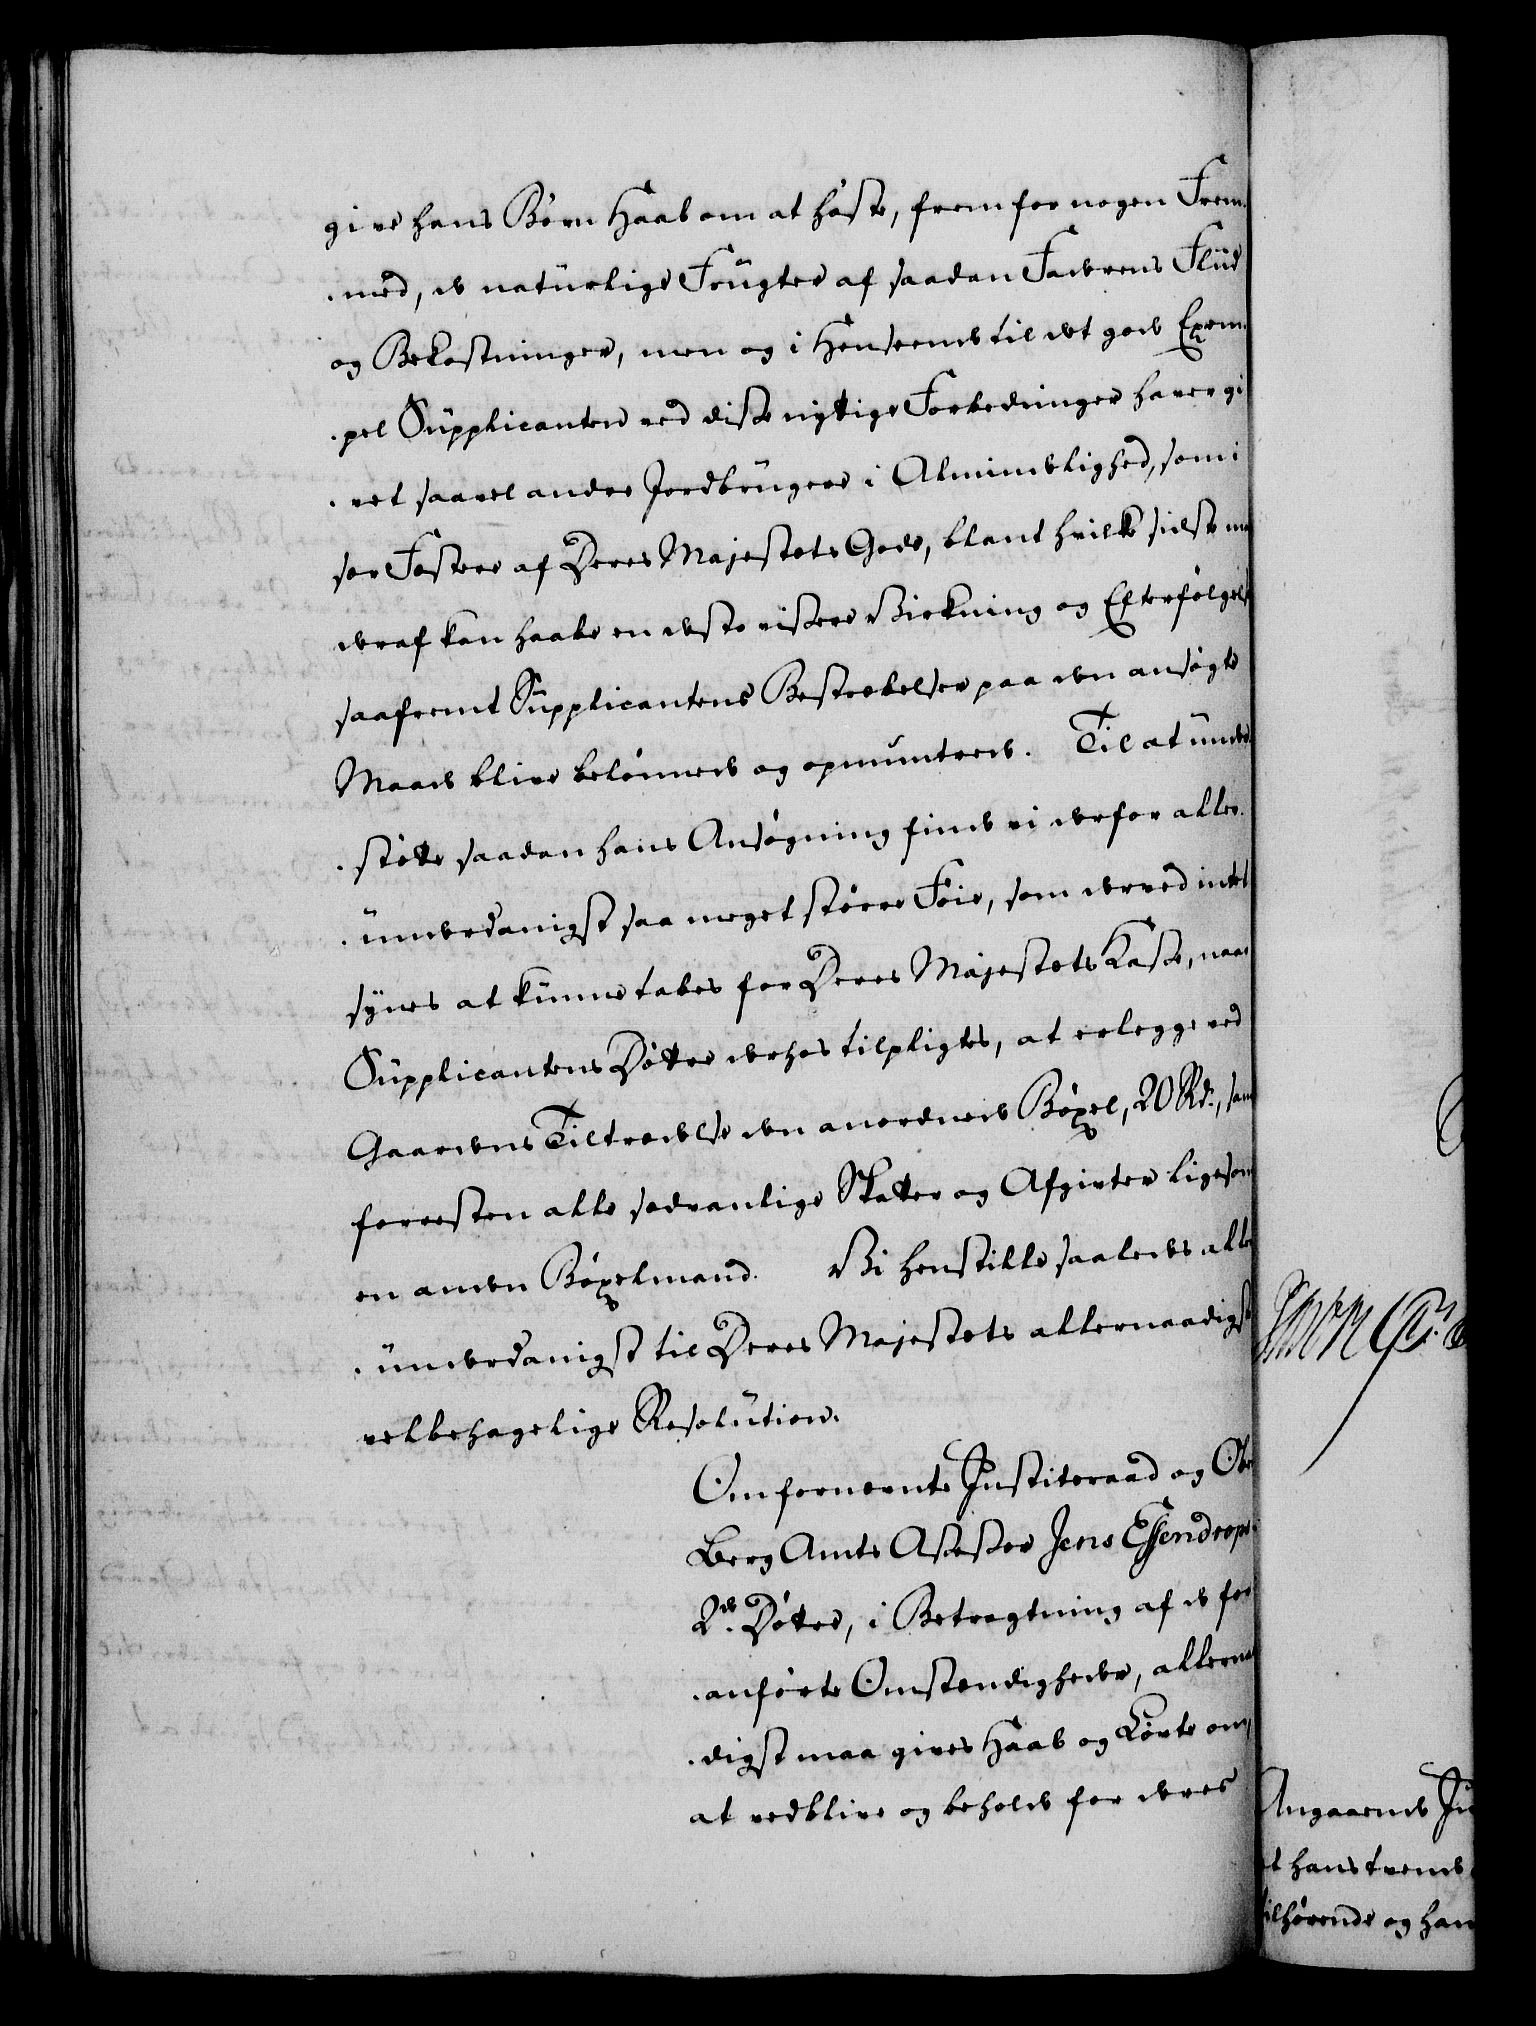 give hans Børn Haab om at høste, frem for nogen Frem-
-med, de natürlige Frügter af saadan Faderens Fliid
og Bekostninger, men og i Henseende til det gode Exem-
-pel Supplicanten ved disse nyttige Forbedringer haver gi-
-vet saavel andre Jordbrügere i Almindelighed, som i
sær Fæstere af Deres Majestæts Gods, blant hvilke sidste man
deraf kan haabe en desto vissere Virkning og Efterfølgelse
saafremt Supplicantens Bestræbelser paa den ansøgte
Maade blive belønnede og opmuntrede. Til at ünder-
-støtte saadan hans Ansøgning finde vi derfor aller-
-ünderdanigst saa meget større Føie, som derved intet
synes at künne tabes for Deres Majestæts Kasse, naar
Supplicantens Døttre derhos tilpligtes, at erlegge ved
Gaardens Tiltrædelse den anordnede Bøxel, 20 Rd:, samt
forresten alle sædvanlige Skatter og Afgivter ligesom
en anden Bøxelmand. Vi henstille saaledes aller-
-ünderdanigst til Deres Majestæts allernaadigst
velbehagelige Resolution.
Om fornevnte Justiteraad og Ober
Berg Amts Assessor Jens Essendrops
2de Døttre, i Betragtning af de for
-anførte Omstændigheder, allernaa-
-digst maa gives Haab og Løvte om,
at vedblive og beholde for deres
Angaaende Ju
at hans tvende
tilhørende og han